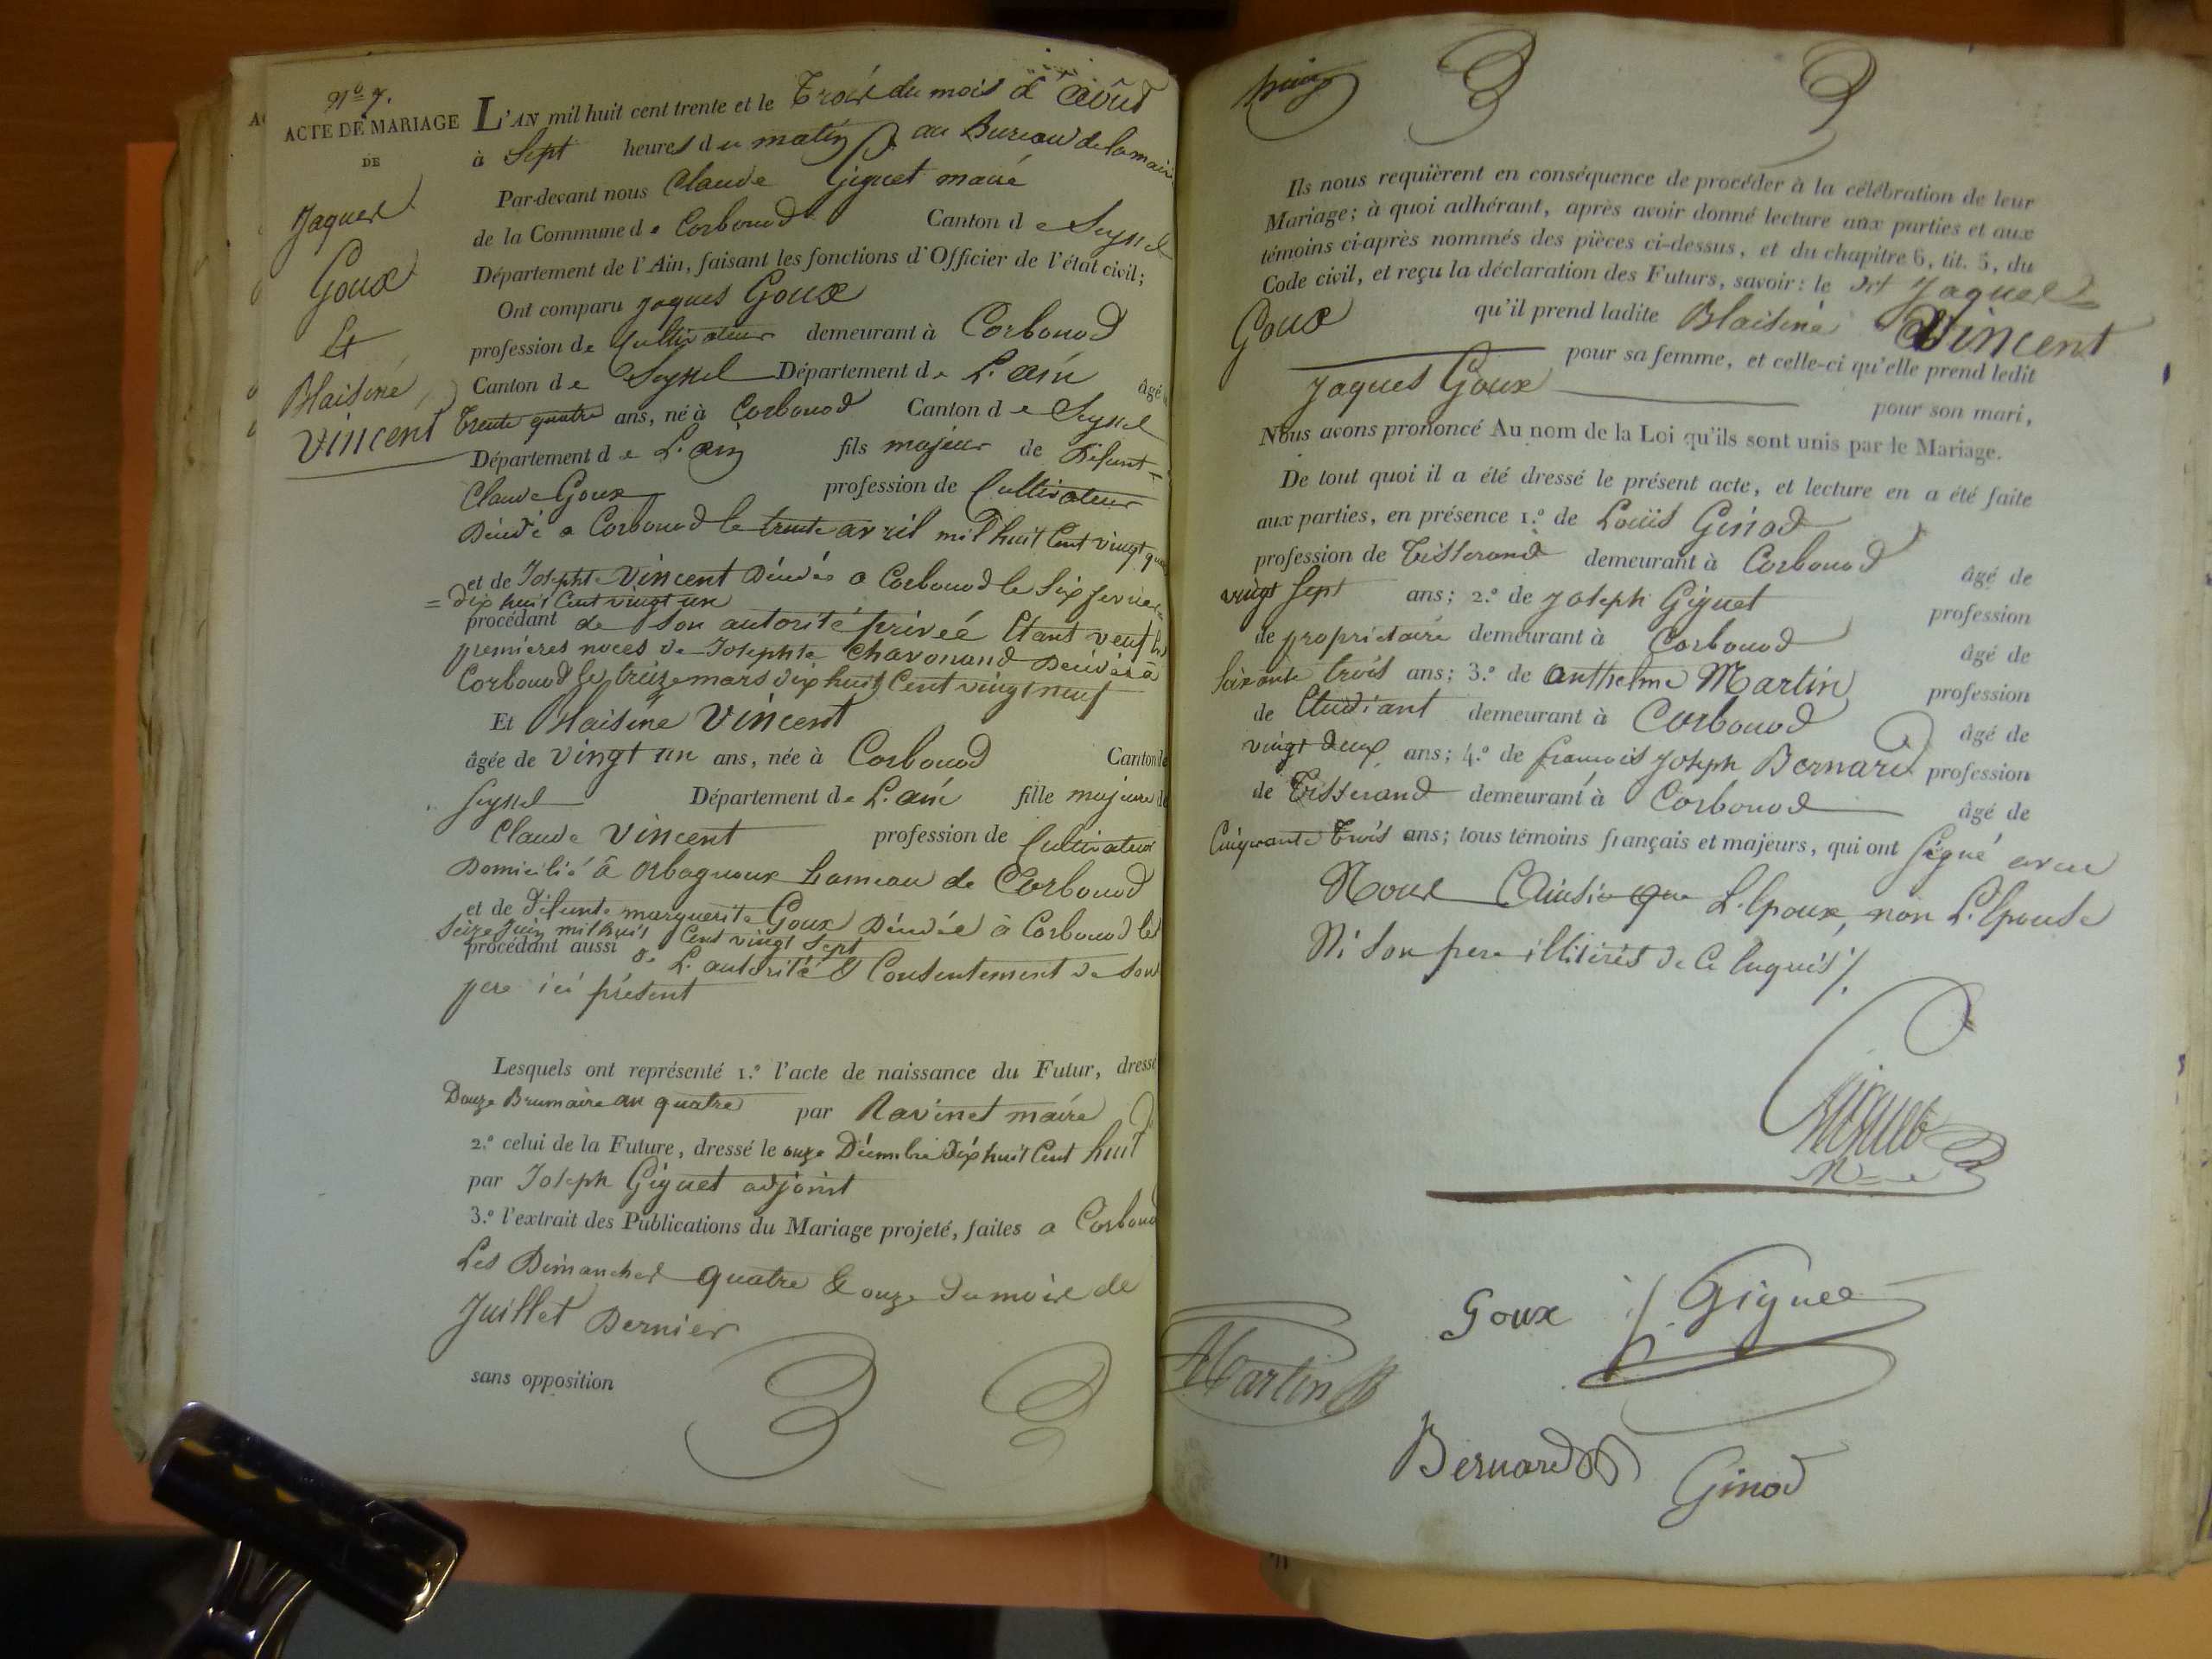 N.o 7.
ACTE DE MARIAGE
DE
Jaques
Goux
&
Blaisine
Vincent
L'AN mil huit cent trente et le Trois du mois d'août
à Sept heures du matin au Bureau de la mairie
Par-devant nous Claude Giguet maire
de la Commune de Corbonod Canton de Seyssel
Département de l'Ain, faisant les fonctions d'Officier de l'état civil;
Ont comparu Jaques Goux
profession de Cultivateur demeurant à Corbonod
Canton de Seyssel Département de L'ain âgé
Trente quatre ans, né à Corbonod Canton de Seyssel
Département de L'ain fils majeur de Défunt
Claude Goux profession de Cultivateur
Décédé a Corbonod le trente avril mil huit Cent vingt
et de Josephte Vincent Décédée a Corbonod le Six fevrier
= dix huit Cent vingt un
procédant de Son autorité privée Etant veuf
premières noces de Josephte Chavonand Décédée à
Corbonod le treize mars dix huit Cent vingt neuf
Et Blaisine Vincent
âgée de vingt un ans, née à Corbonod Canton de
Seyssel Département de L'ain fille majeure de
Claude Vincent profession de Cultivateur
Domicilié à Orbagnoux hameau de Corbonod
et de défunte marguerite Goux Décédée à Corbonod le
Seize Juin mil huit Cent vingt Sept
procédant aussi de L'autorité & Consentement de Son
pere ici présent
Lesquels ont représenté 1.o l'acte de naissance du Futur, dressé
Douze Brumaire an quatre par Ravinet maire
2.o celui de la Future, dressé le onze Décembre dix huit Cent huit
par Joseph Giguet adjoint
3.o l'extrait des Publications du Mariage projeté, faites a Corbonod
Les Dimanches quatre & onze du mois de
Juillet Dernier
sans opposition
Ils nous requièrent en conséquence de procéder à la célébration de leur
Mariage; à quoi adhérant, après avoir donné lecture aux parties et aux
témoins ci-après nommés des pièces ci-dessus, et du chapitre 6, tit. 5, du
Code civil, et reçu la déclaration des Futurs, savoir: le dit Jaques
Goux qu'il prend ladite Blaisine Vincent
pour sa femme, et celle-ci qu'elle prend ledit
Jaques Goux pour son mari,
Nous avons prononcé Au nom de la Loi qu'ils sont unis par le Mariage.
De tout quoi il a été dressé le présent acte, et lecture en a été faite
aux parties, en présence 1.o de Louis Ginod
profession de Tisserand demeurant à Corbonod âgé de
vingt Sept ans; 2.o de Joseph Giguet profession
de propriétaire demeurant à Corbonod âgé de
Soixante trois ans; 3.o de Anthelme Martin profession
de Etudiant demeurant à Corbonod âgé de
vingt deux ans; 4.o de françois Joseph Bernard profession
de Tisserand demeurant à Corbonod âgé de
Cinquante Trois ans; tous témoins français et majeurs, qui ont Signé avec
Nous Ainsi que L'Epoux, non L'Epouse
Ni Son pere illitérés de Ce Enquis ./.
Giguet
Goux J Giguet
Martin
Bernard Ginod